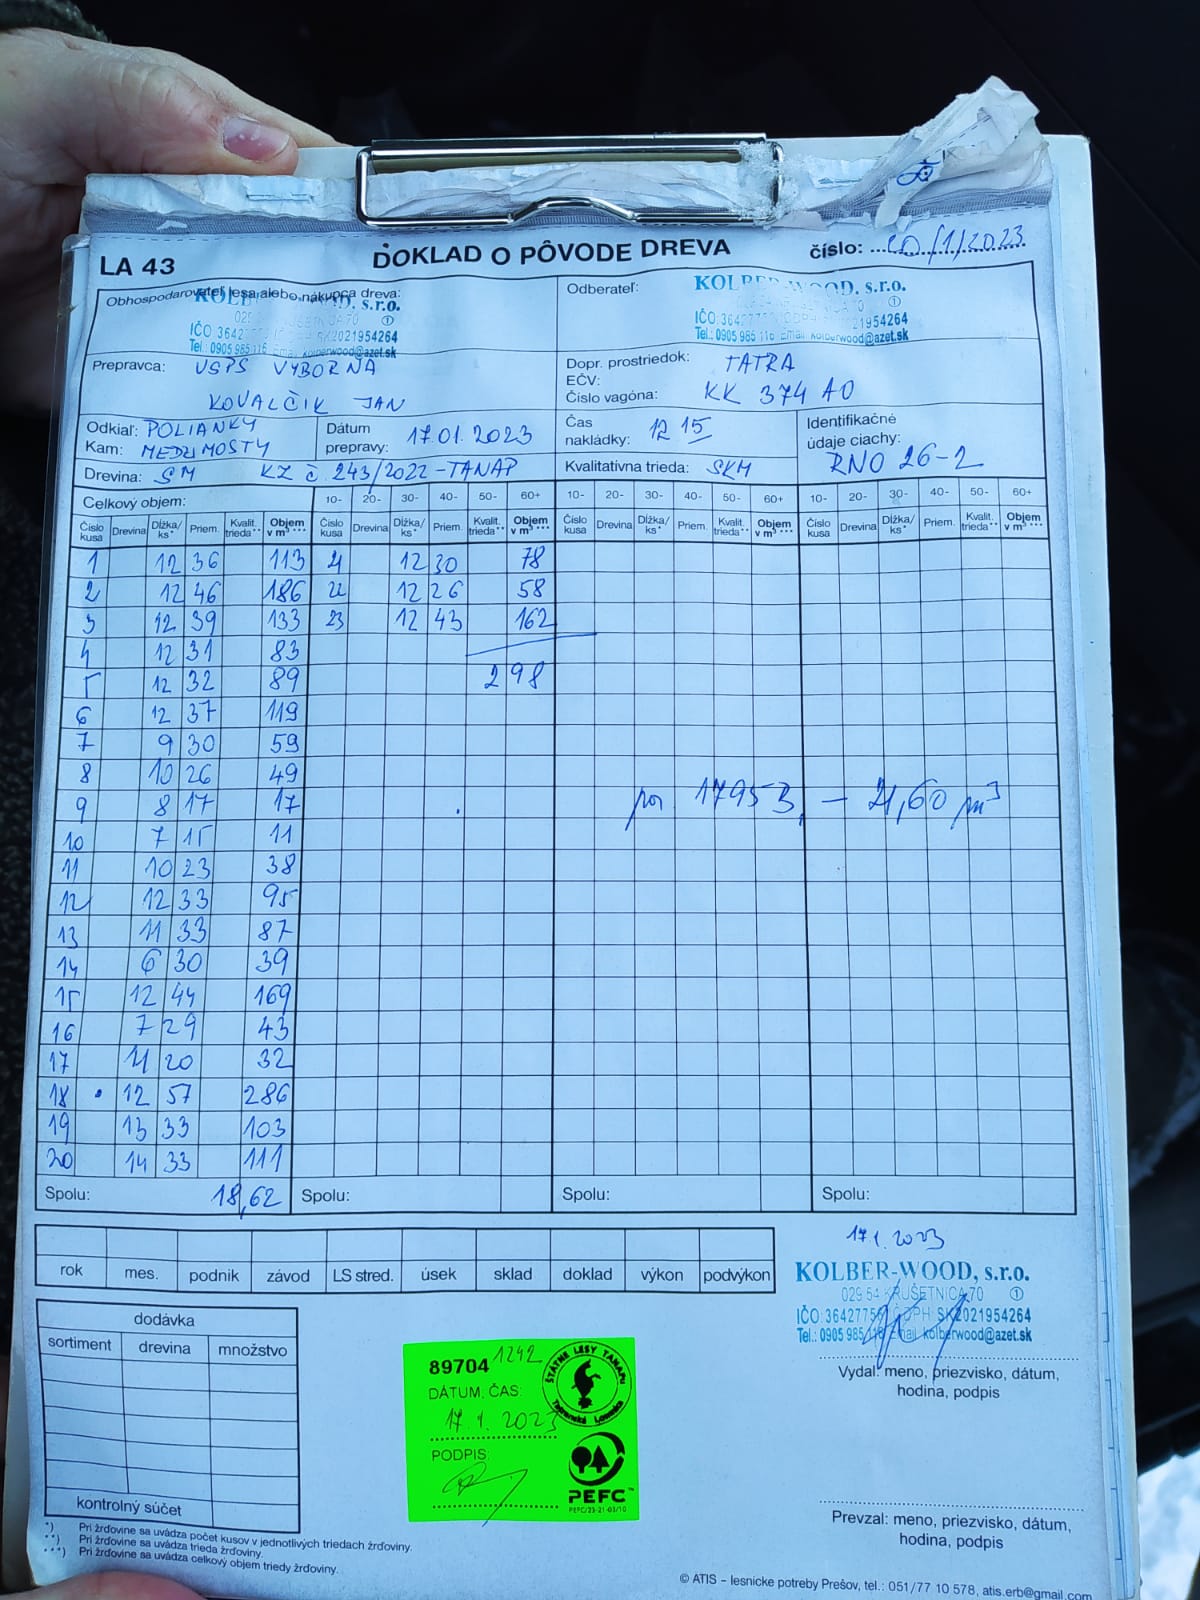 LA 43
DOKLAD O PÔVODE DREVA
číslo: 20/1/2023
Obhospodarovateľ lesa alebo nákupca dreva:
KOLBER-WOOD, s.r.o.
Tel.: 0905 985 116 Email kolberwood@azet.sk
Odberateľ:
KOLBER-WOOD, s.r.o.
Tel.: 0905 985 116 Email kolberwood@azet.sk
Prepravca: USPS VYBORNA
KOVALČIK JAN
Dopr. prostriedok: TATRA
EČV:
Číslo vagóna: KK 374 AO
Odkiaľ: POLIANKY
Kam: MEDZIMOSTY
Dátum prepravy: 17.01.2023
Čas nakládky: 12 15
Identifikačné údaje ciachy:
RNO 26-2
Drevina: SM KZ č. 243/2022-TANAP
Kvalitatívna trieda: SKM
Celkový objem: 10- 20- 30- 40- 50- 60+ 10- 20- 30- 40- 50- 60+ 10- 20- 30- 40- 50- 60+
Číslo kusa Drevina Dĺžka/ks* Priem. Kvalit. trieda** Objem v m³*** Číslo kusa Drevina Dĺžka/ks* Priem. Kvalit. trieda** Objem v m³*** Číslo kusa Drevina Dĺžka/ks* Priem. Kvalit. trieda** Objem v m³*** Číslo kusa Drevina Dĺžka/ks* Priem. Kvalit. trieda** Objem v m³***
1 12 36 113 21 12 30 78
2 12 46 186 22 12 26 58
3 12 39 133 23 12 43 162
4 12 31 83
5 12 32 89 298
6 12 37 119
7 9 30 59
8 10 26 49
9 8 17 17 17953 – 21,60 m³
10 7 15 11
11 10 23 38
12 12 33 95
13 11 33 87
14 6 30 39
15 12 44 169
16 7 29 43
17 11 20 32
18 12 57 286
19 13 33 103
20 14 33 111
Spolu: 18,62 Spolu: Spolu: Spolu:
rok mes. podnik závod LS stred. úsek sklad doklad výkon podvýkon
17.1.2023
KOLBER-WOOD, s.r.o.
029 54 KRUŠETNICA 70 ①
Tel.: 0905 985 116 Email kolberwood@azet.sk
Vydal: meno, priezvisko, dátum,
hodina, podpis
dodávka
sortiment drevina množstvo
kontrolný súčet
89704 1242
DÁTUM, ČAS:
17.1.2023
PODPIS:
ŠTÁTNE LESY TANAPU
Tatranská Lomnica
PEFC™
PEFC/23-21-03/10
Prevzal: meno, priezvisko, dátum,
hodina, podpis
*) Pri žrďovine sa uvádza počet kusov v jednotlivých triedach žrďoviny.
**) Pri žrďovine sa uvádza trieda žrďoviny.
***) Pri žrďovine sa uvádza celkový objem triedy žrďoviny.
© ATIS – lesnicke potreby Prešov, tel.: 051/77 10 578, atis.erb@gmail.com